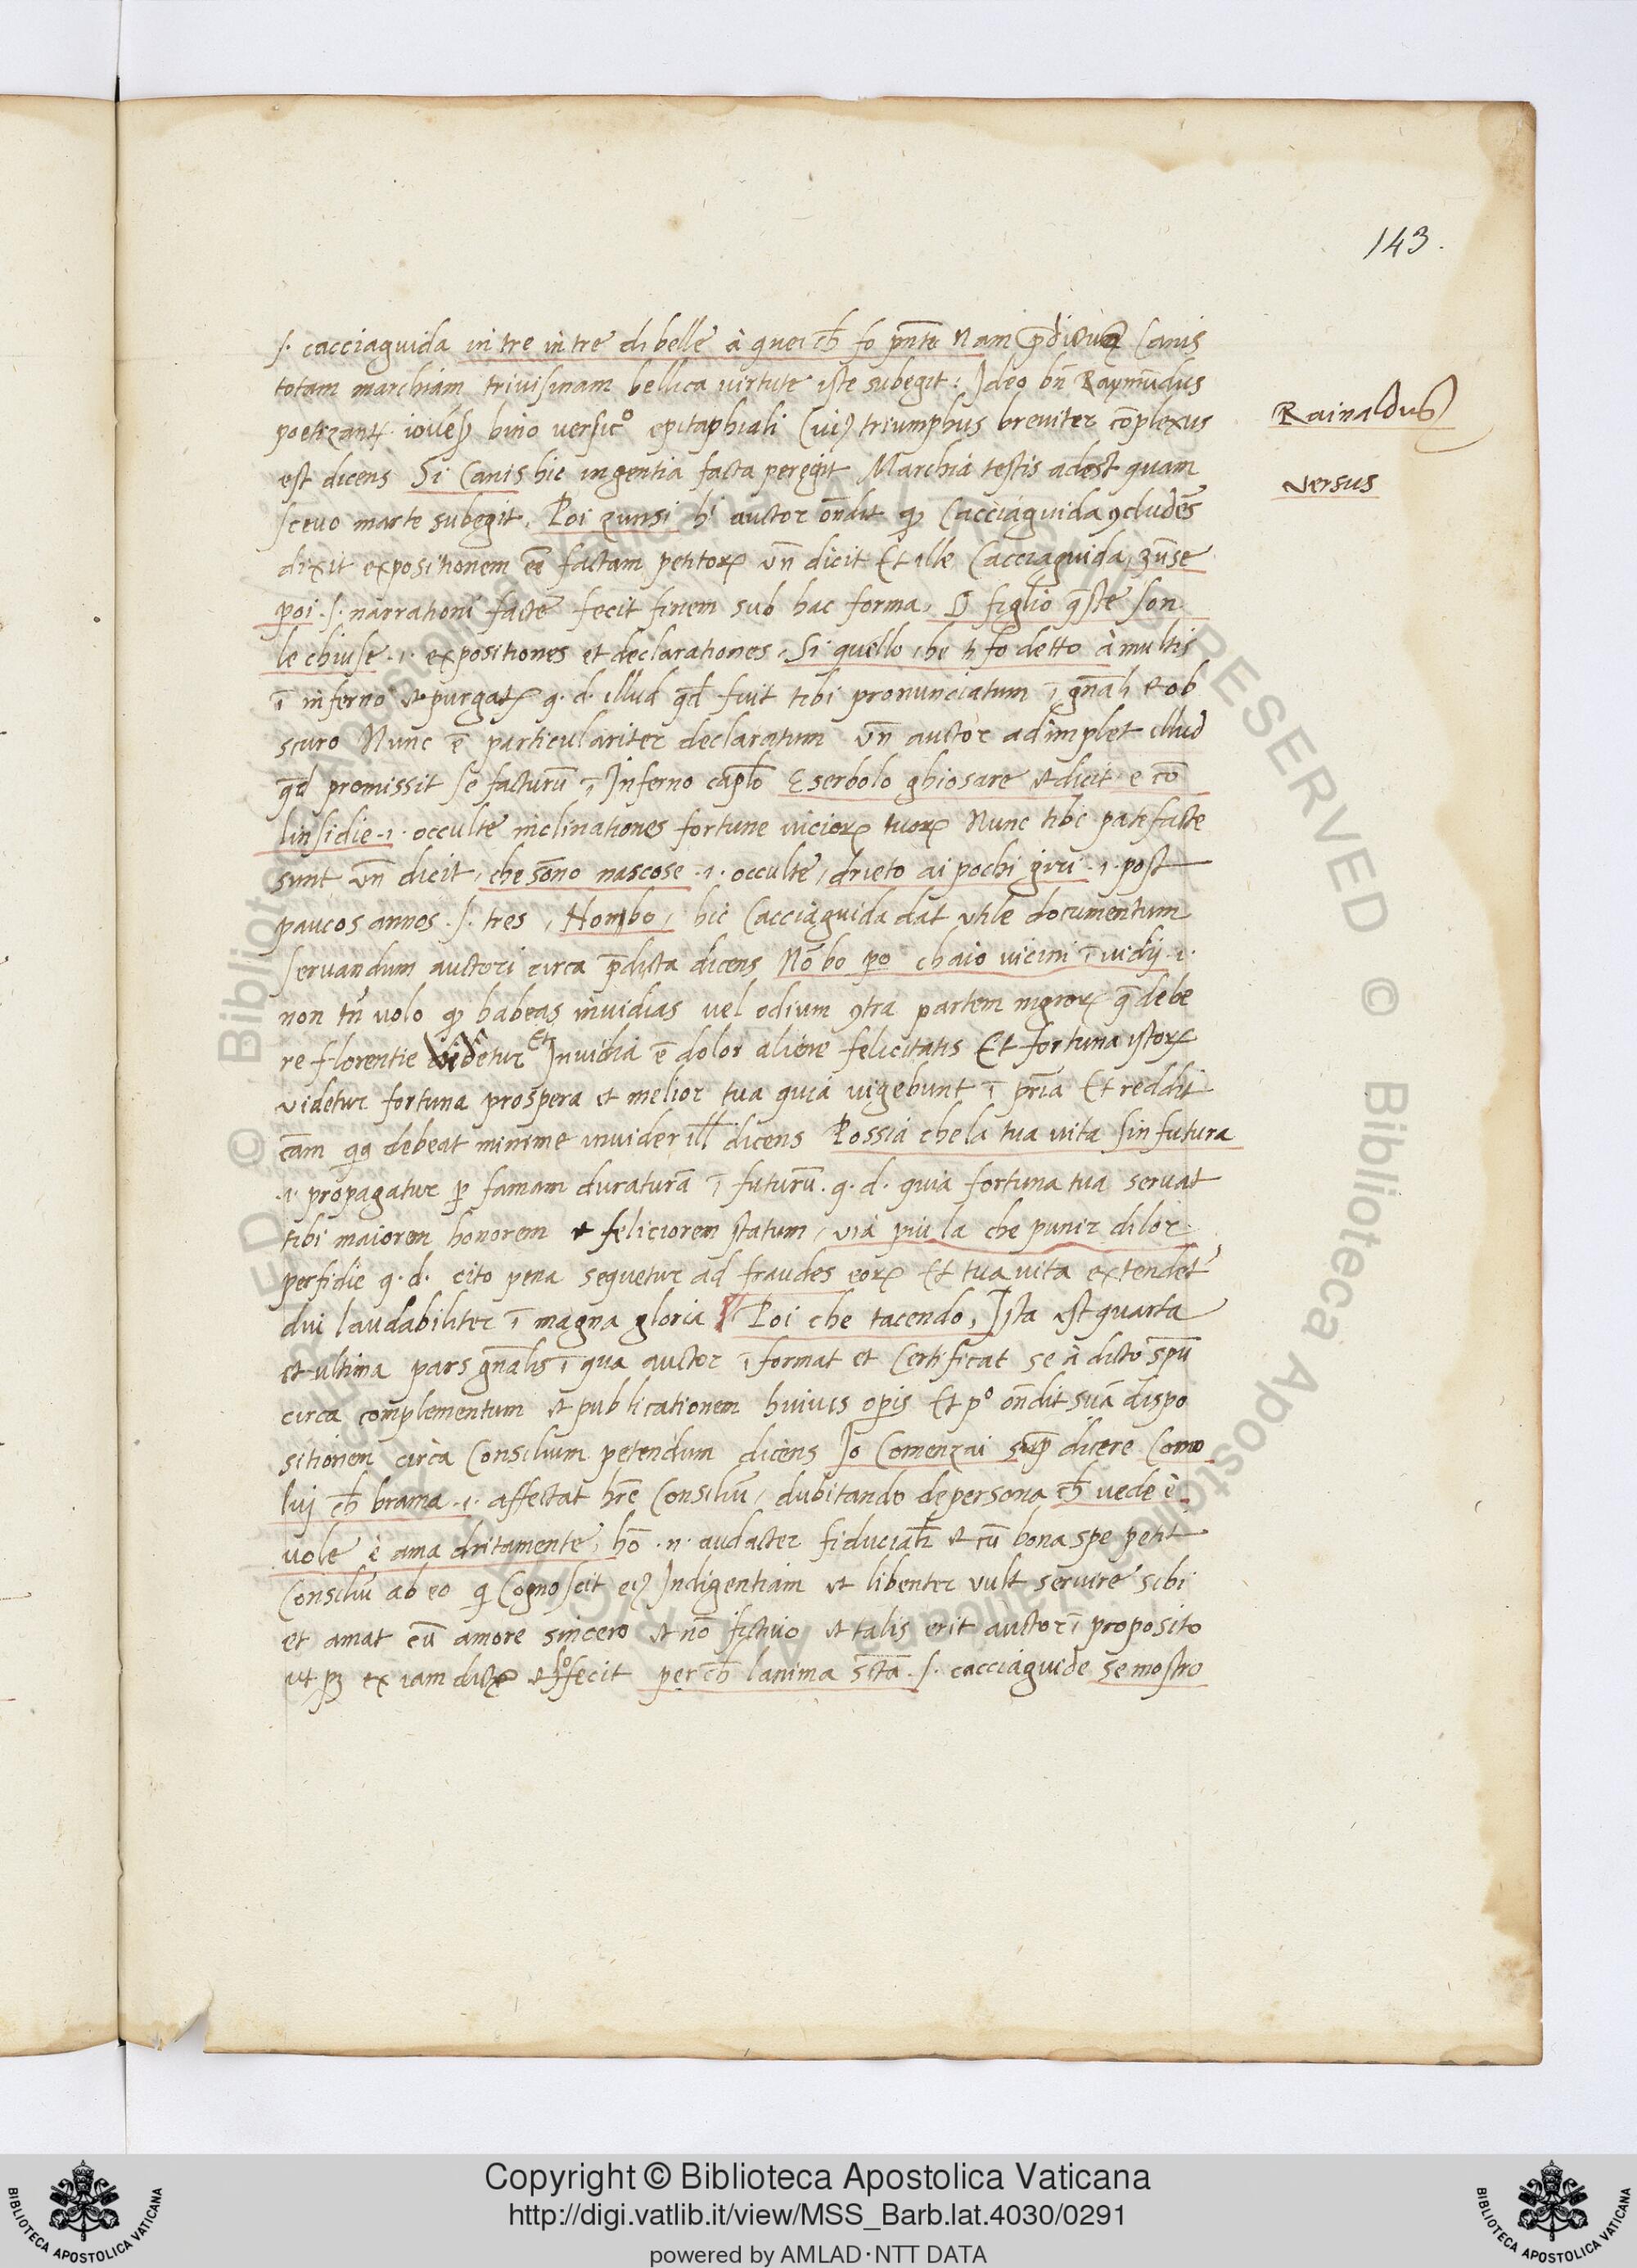 143.
s. cacciaguida in tre in tre di belle à quei ch̄ fo pn̄te Nam p̄dictus Canis
totam marchiam trivisinam bellica virtute iste subegit. Ideo bn̄ Raymūdus
Rainaldus
bino versic° epitaphiali triumphus breviter cōplexus
est dicens Si Canis hic ingentia facta peregit Marchia testis adest quam
versus
scevo marte subegit. Poi zunsi auctor on̄dit Cacciaguida ꝯcludēs
dixit expositionem factam petitoꝝ Vn̄ dicit Et ille Cacciaguida, zūse
poi .s. narrationi facte fecit finem sub hac forma. O figlio q̄ste son
le chiuse .i. expositiones et declarationes. Si quello che ti fo detto à multis
ī inferno et purgatꝝ q. d. illud qd̄ fuit tibi pronunciatum ī gn̄ali et ob
scuro Nunc ē particulariter declaratum Vn̄ auctor adimplet illud
qd̄ promissit se facturū ī Inferno cap̄lo E serbolo ghiosare et dicit e cō
linsidie .i. occulte inclinationes fortune vicioꝝ tuoꝝ Nunc tibi patefacte
sunt Vn̄ dicit, che sōno nascose .i. occulte, drieto ai pochi giri .i. post
paucos annos .s. tres, Non bo, hic Cacciaguida dat utile documentum
servandum auctori circa p̄dicta dicens Nō bo po chaio vicini ī vidij .i.
non tn̄ volo habeas invidias vel odium ꝯtra partem nigroꝝ debe
re florentie videtur Et Invidia ē dolor aliene felicitatis Et fortuna istoꝝ
videtur fortuna prospera et melior tua quia vigebunt ī pr̄ia Et reddit
cām debeat minime invider ill̄ dicens Possia che la tua vita sin futura
.i. propagatur ꝑ famam duraturā ī futurū. q. d. quia fortuna tua servat
tibi maiorem honorem et feliciorem statum, via piu la che punir di lor
perfidie q. d. cito pena sequetur ad fraudes eoꝝ Et tua vita extendet
dui laudabiliter ī magna gloria ¶ Poi che tacendo, Ista est quarta
et ultima pars gn̄alis ī qua auctor īformat et Certificat se à dicto spū
circa complementum et publicationem huius opis Et p° on̄dit suā dispo
sitionem circa Consilium petendum dicens Io Comenzai sup̄ dicere Como
lui ch̄ brama .i. affectat hr̄e Consiliū, dubitando de persona ch̄ vede è
vole è ama dritamente, hō .n. audacter fiducialr̄ et cū bona spe petit
Consiliū ab eo q̄ Cognoscit Indigentiam et libenter vult servire sibi
et amat cū amore sincero et nō fictivo et talis erit auctor ī proposito
ut ex iam dictꝝ fecit per ch̄ lanima sc̄tā .s. cacciaguide se mostro
Copyright © Biblioteca Apostolica Vaticana
http://digi.vatlib.it/view/MSS_Barb.lat.4030/0291
powered by AMLAD·NTT DATA